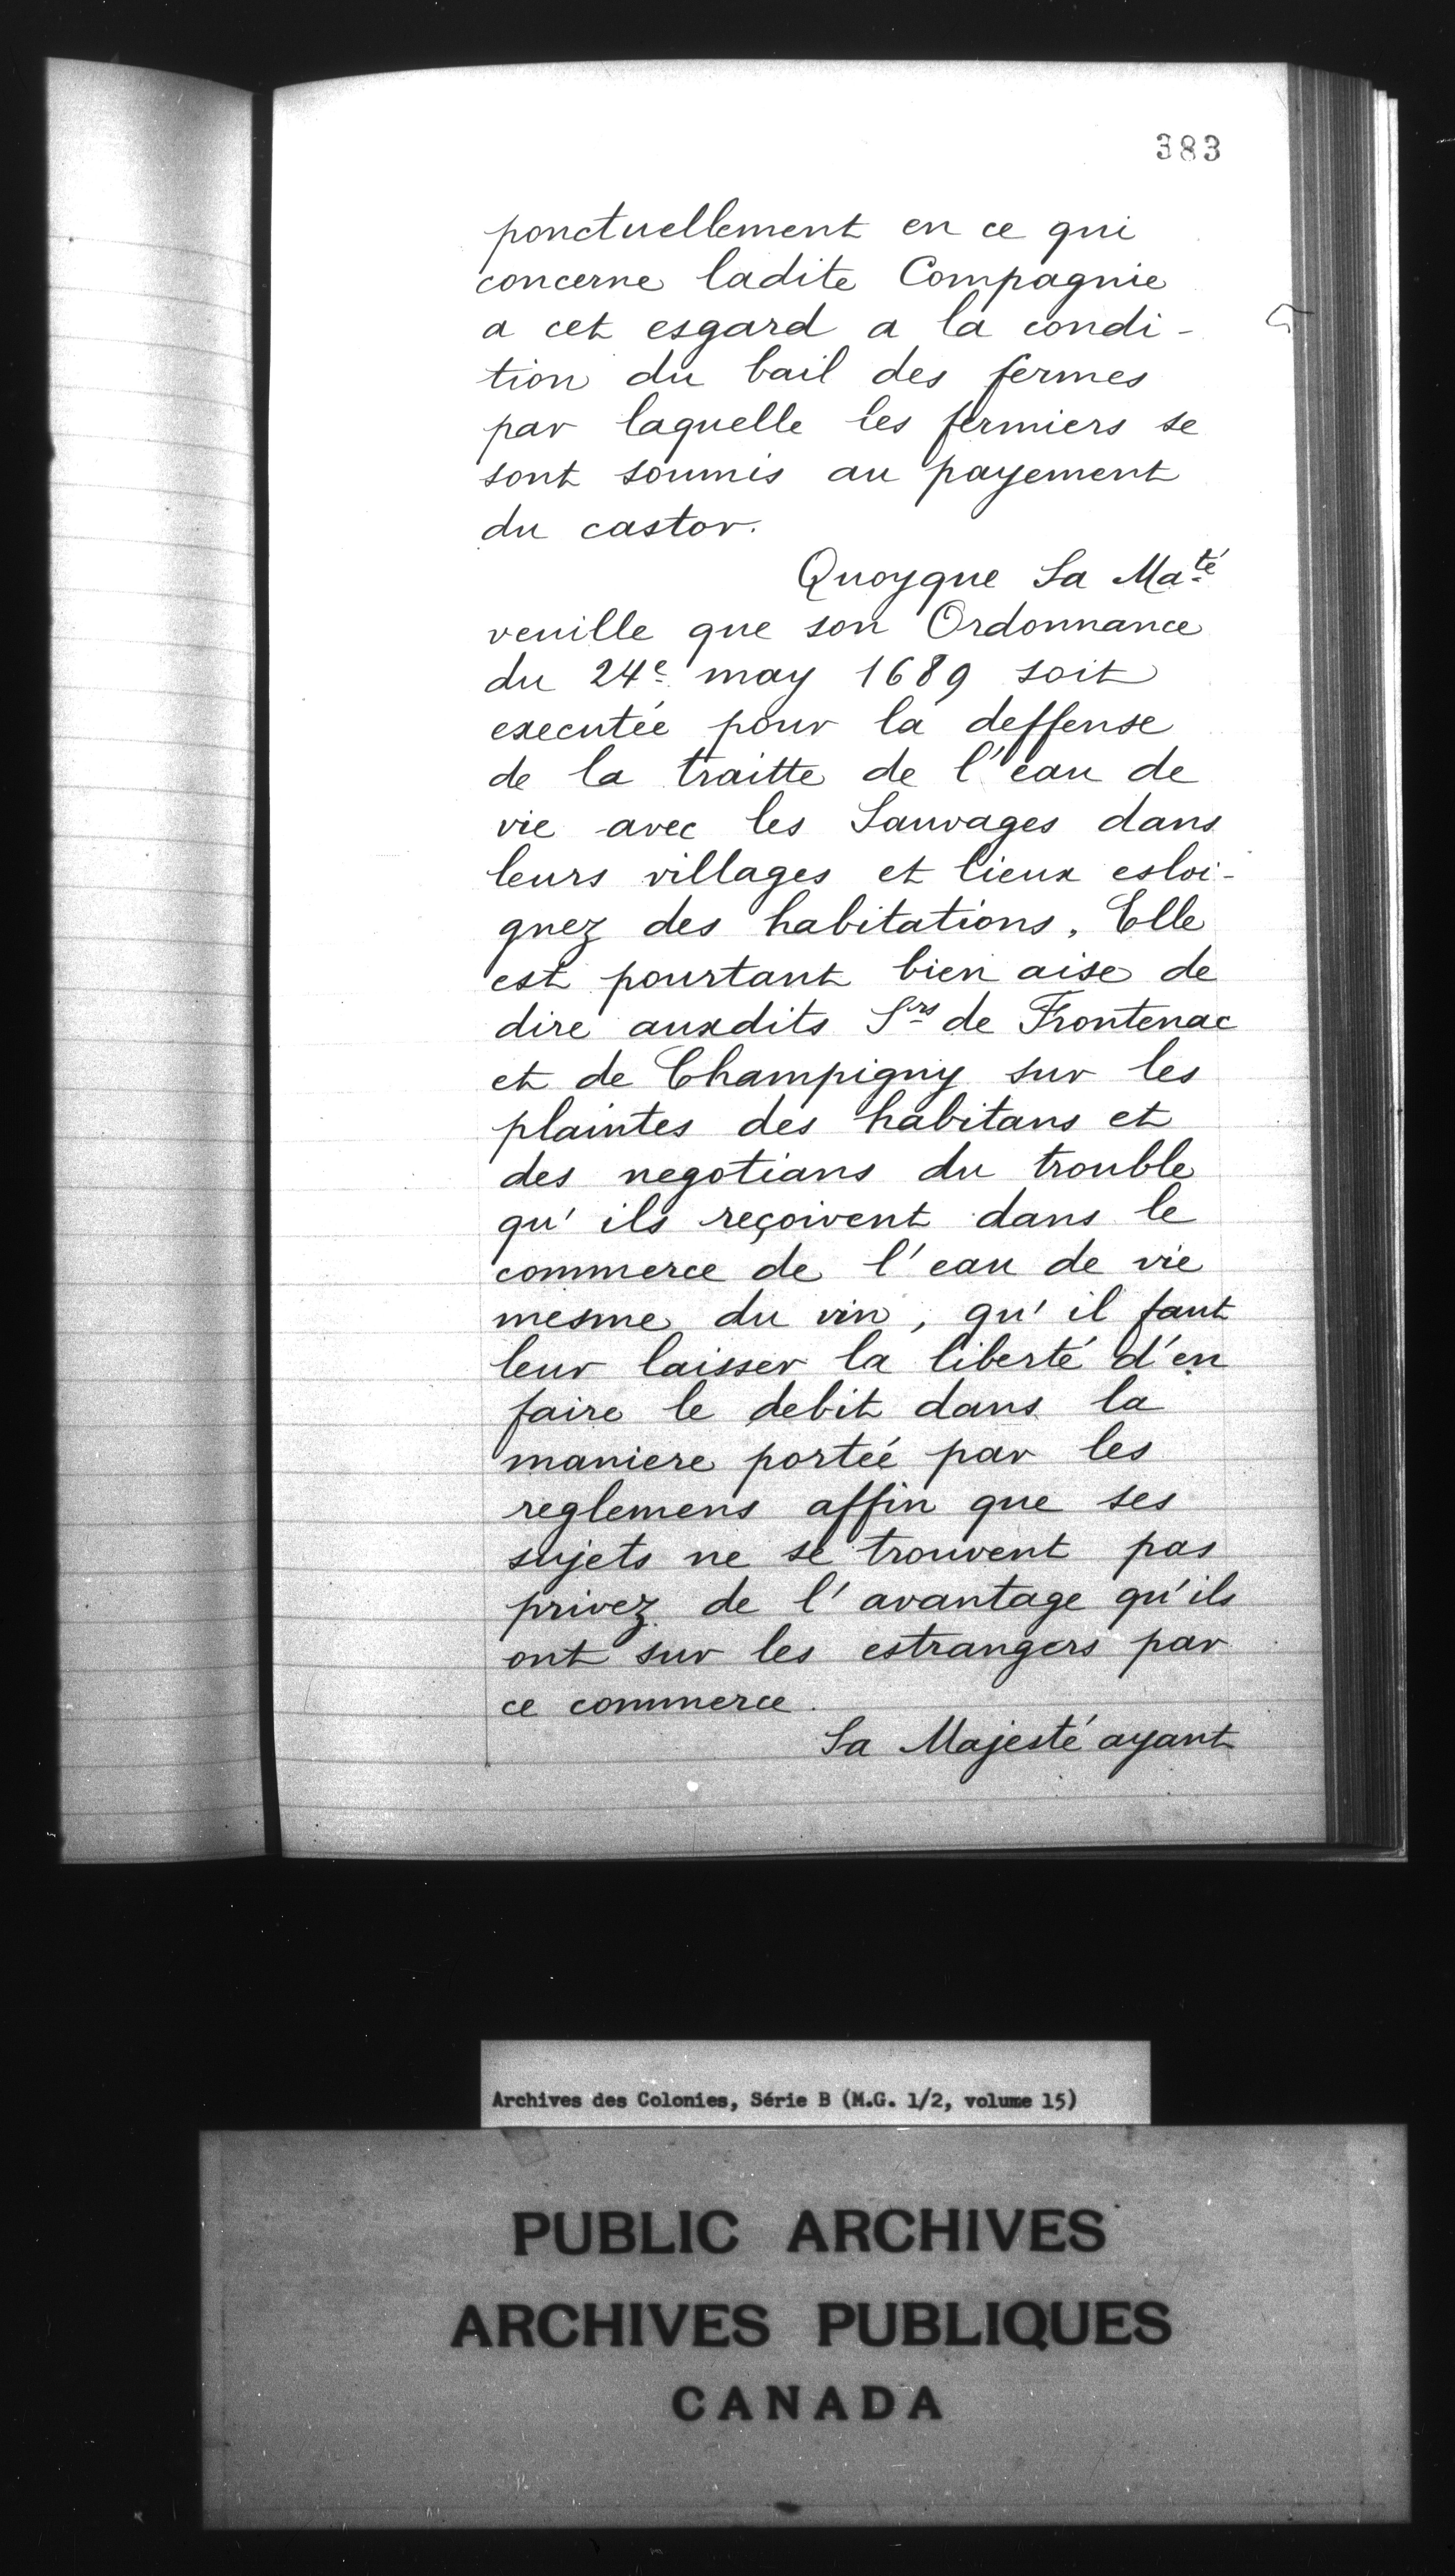 383
ponctuellement en ce qui
concerne ladite Compagnie
a cet esgard a la condi-
tion du bail des fermes
par laquelle les fermiers se
sont soumis au payement
du castor.
Quoyque Sa Maté
veuille que son Ordonnance
du 24e may 1689 soit
executée pour la deffense
de la traitte de l'eau de
vie avec les Sauvages dans
leurs villages et lieux esloi-
gnez des habitations, Elle
est pourtant bien aise de
dire auxdits Srs de Frontenac
et de Champigny sur les
plaintes des habitans et
des negotians du trouble
qu'ils reçoivent dans le
commerce de l'eau de vie
mesme du vin, qu'il faut
leur laisser la liberté d'en
faire le debit dans la
maniere portée par les
reglemens affin que ses
sujets ne se trouvent pas
privez de l'avantage qu'ils
ont sur les estrangers par
ce commerce.
Sa Majesté ayant
Archives des Colonies, Série B (M.G. 1/2, volume 15)
PUBLIC ARCHIVES
ARCHIVES PUBLIQUES
CANADA